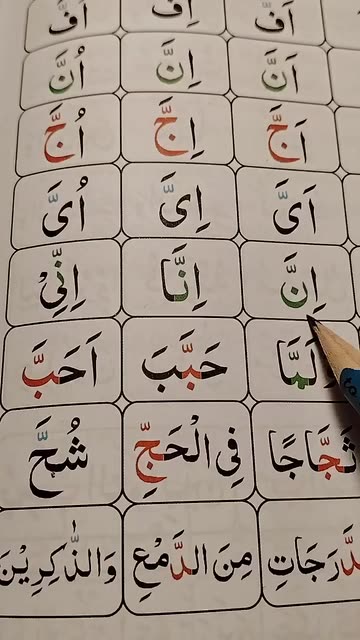 اَفَّ اِفَّ اُفَّ
اَنَّ اِنَّ اُنَّ
اَجَّ اِجَّ اُجَّ
اَىَّ اِىَّ اُىَّ
اِنَّ اِنَّا اِنِّىْ
حَبَّبَ اَحَبَّ
ثَجَّاجًا فِى الْحَجِّ شُحَّ
مِنَ الدَّمْعِ وَالذّٰكِرِيْنَ